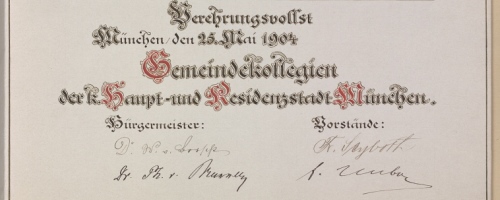 Verehrungsvollst
München, den 25. Mai 1904
Gemeindekollegien
der k. Haupt- und Residenzstadt München.
Bürgermeister: Vorstände:
Dr. W. v. Borscht F. Seyboth
Dr. Ph. v. Brunner